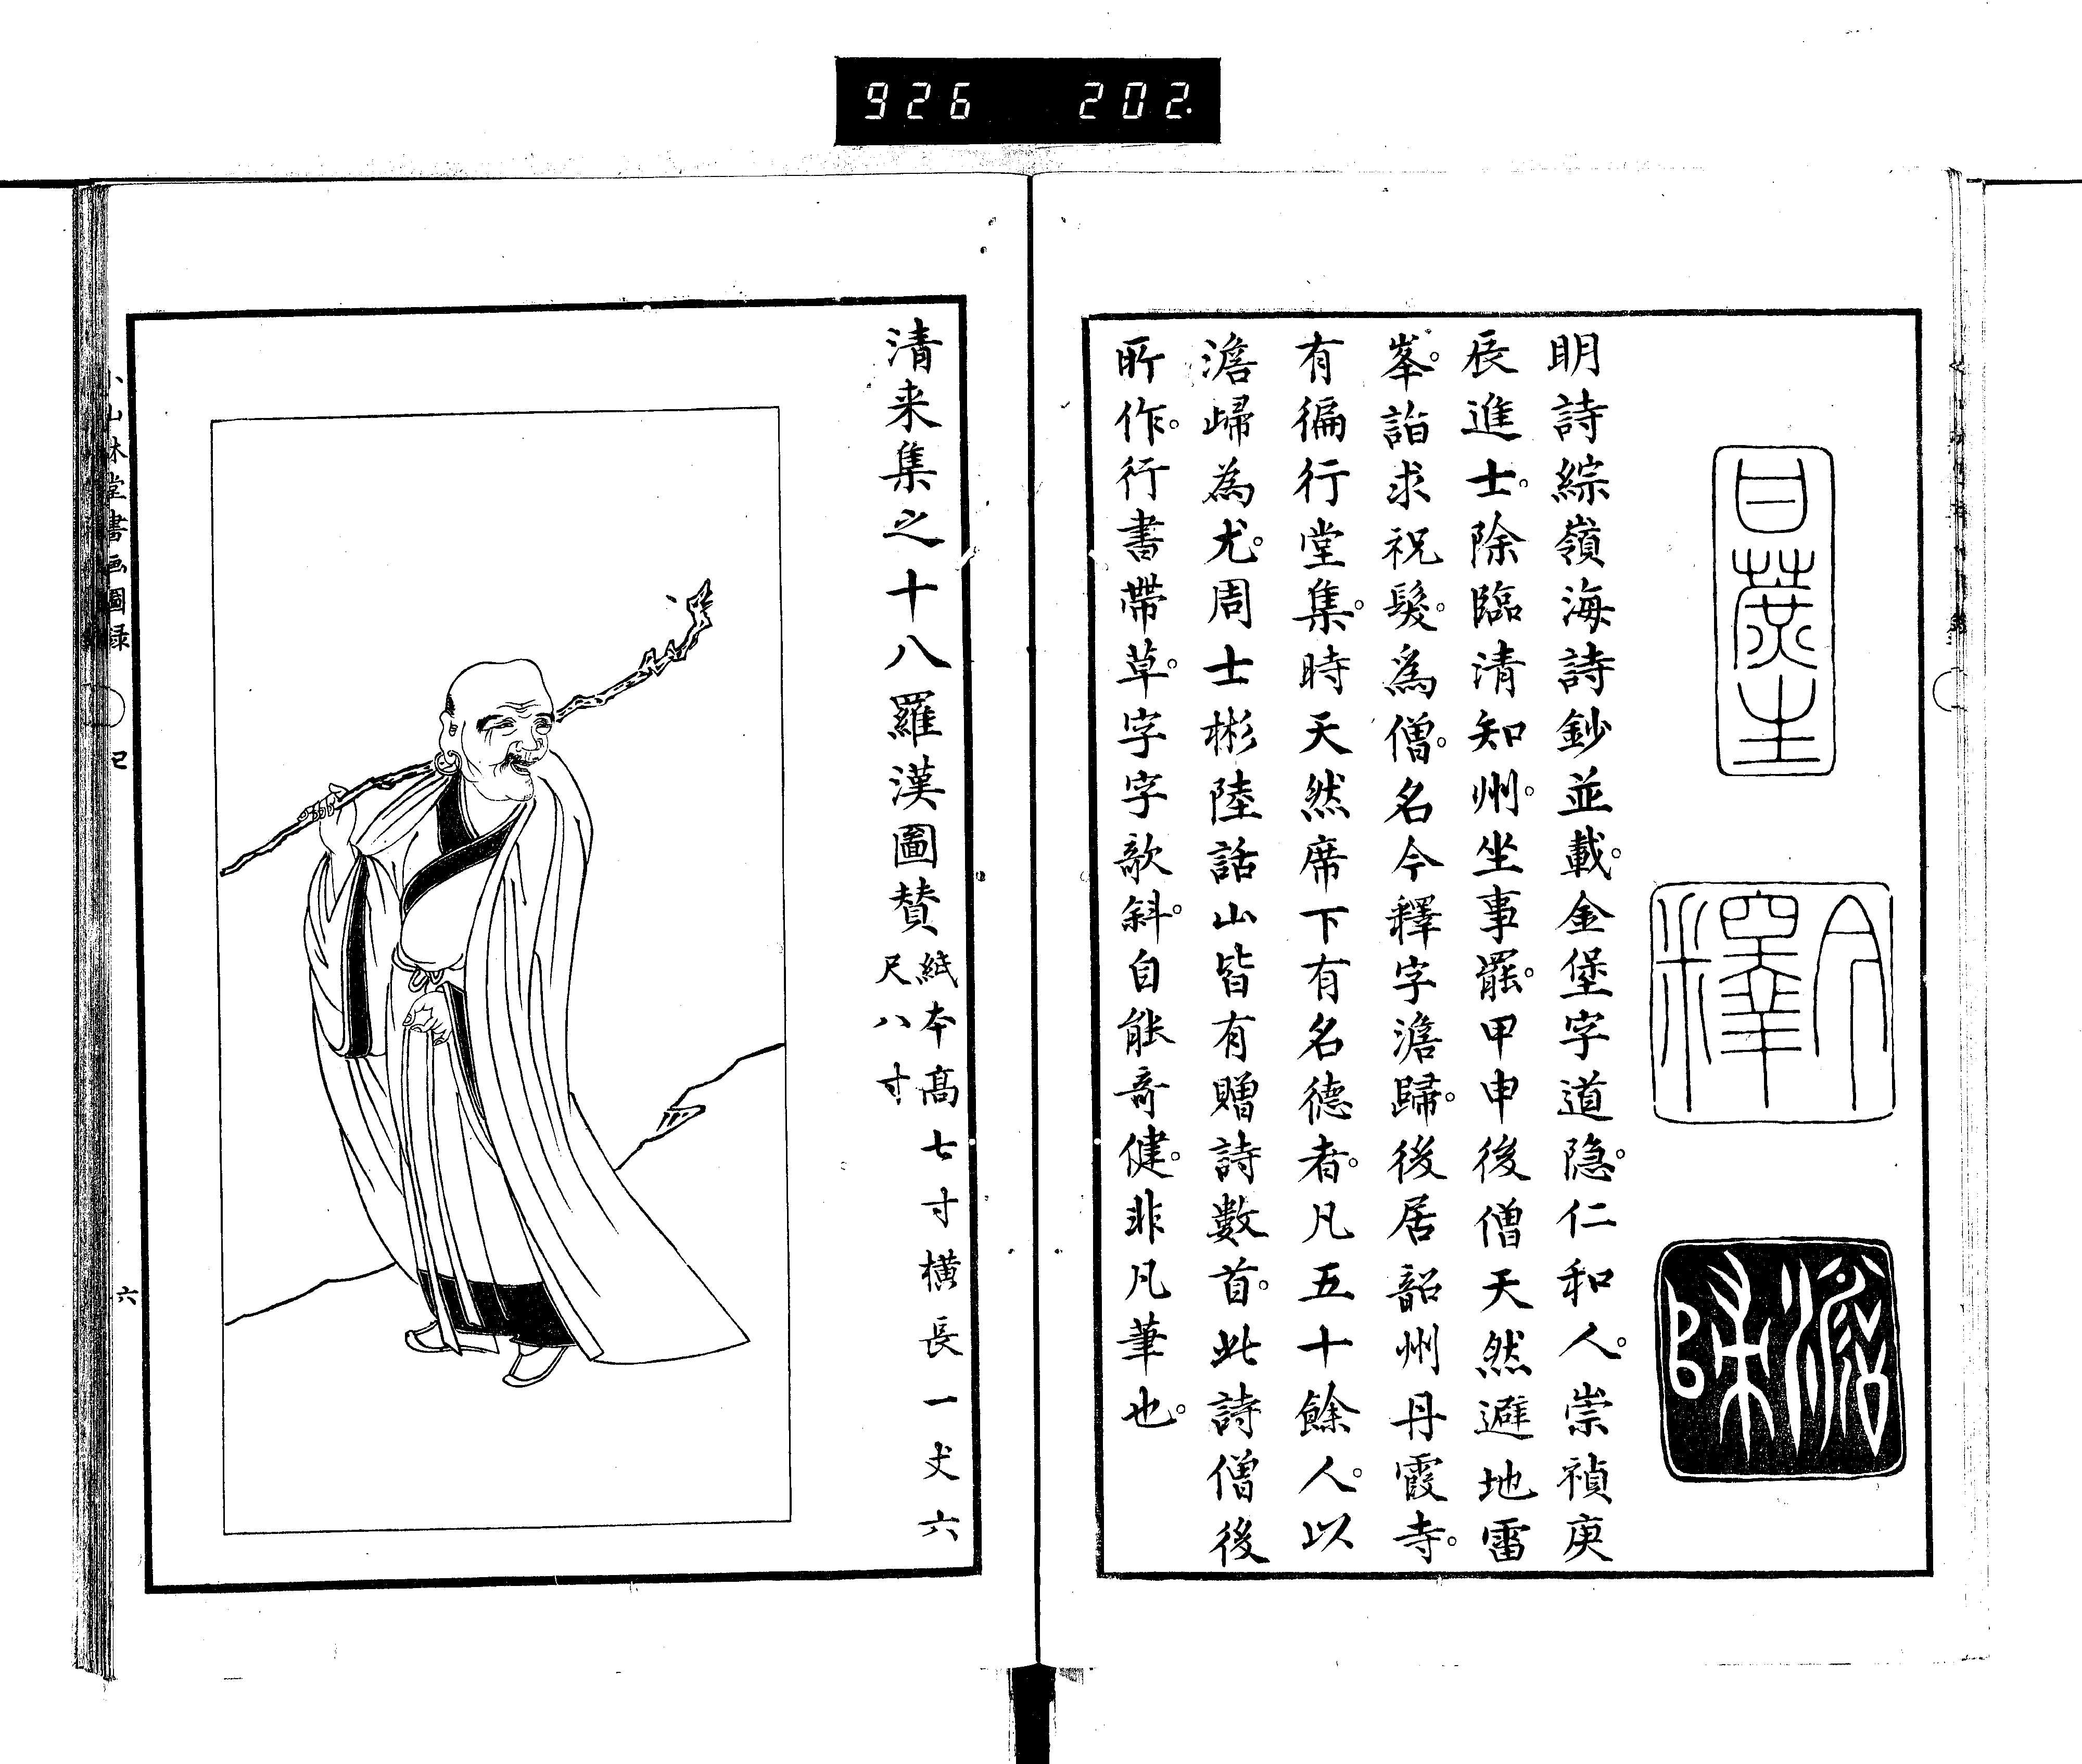 926 202.
今釋
澹歸
明詩綜嶺海詩鈔並載。金堡字道隐。仁和人。崇禎庚
辰進士。除臨清知州。坐事罷。甲申後僧天然避地雷
峯。詣求祝髮。爲僧。名今釋字澹歸。後居韶州丹霞寺。
有徧行堂集。時天然席下有名德者。凡五十餘人。以
澹歸為尤。周士彬陸話山皆有贈詩數首。此詩僧後
所作。行書帶草。字字欹斜。自能奇健。非凡筆也。
清来集之十八羅漢圖賛
紙本高七寸横長一丈六
尺八寸
小山林堂書画圖録 己 六